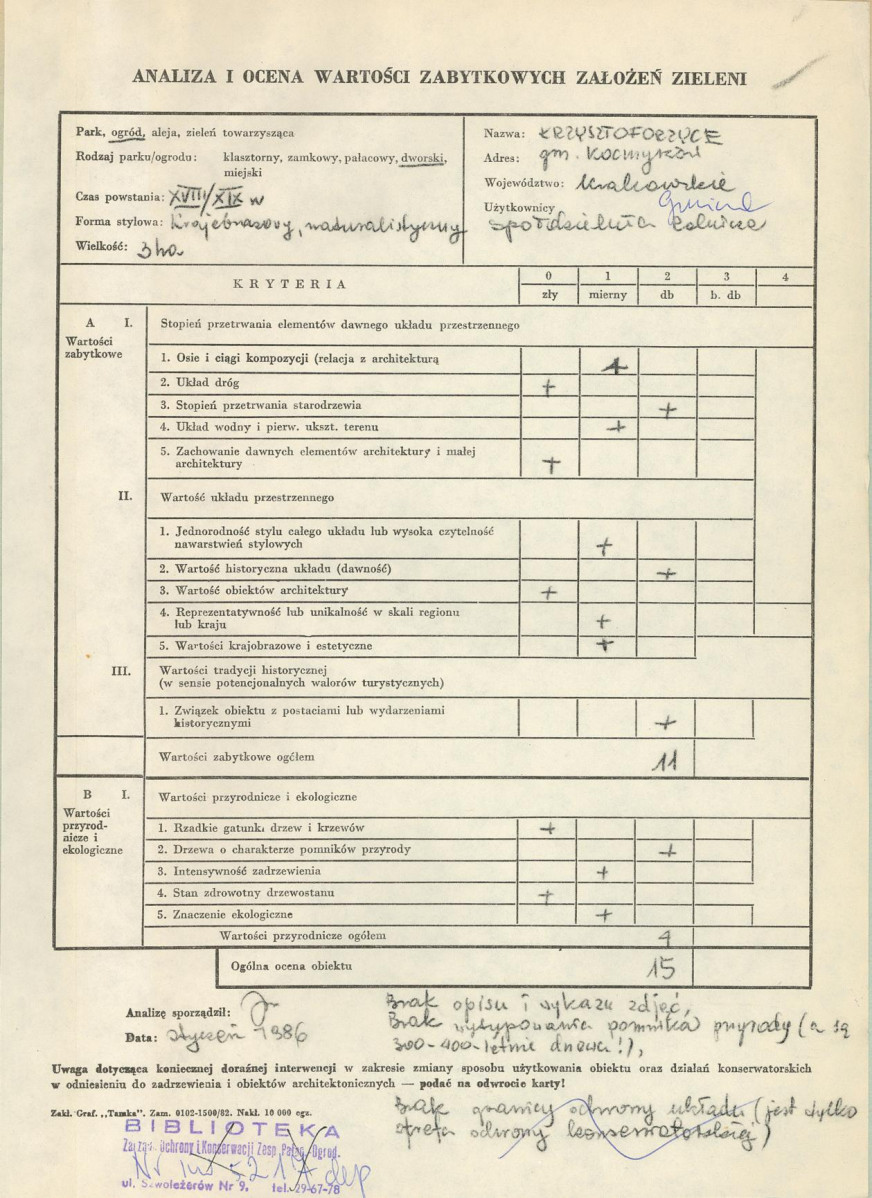 ANALIZA I OCENA WARTOŚCI ZABYTKOWYCH ZAŁOŻEŃ ZIELENI
Park, ogród, aleja, zieleń towarzysząca
Rodzaj parku/ogrodu: klasztorny, zamkowy, pałacowy, dworski,
miejski
Czas powstania: XVIII/XIX w
Forma stylowa: Krajobrazowy, naturalistyczny
Wielkość: 3 ha
Nazwa: KRZYSZTOFORZYCE
Adres: gm. Kocmyrzów
Województwo: krakowskie
Użytkownicy Gmina
spółdzielnia Rolnicza
KRYTERIA 0 1 2 3 4
zły mierny db b. db
A I. Stopień przetrwania elementów dawnego układu przestrzennego
Wartości
zabytkowe
1. Osie i ciągi kompozycji (relacja z architekturą +
2. Układ dróg +
3. Stopień przetrwania starodrzewia +
4. Układ wodny i pierw. ukszt. terenu +
5. Zachowanie dawnych elementów architektury i małej
architektury +
II. Wartość układu przestrzennego
1. Jednorodność stylu całego układu lub wysoka czytelność
nawarstwień stylowych +
2. Wartość historyczna układu (dawność) +
3. Wartość obiektów architektury +
4. Reprezentatywność lub unikalność w skali regionu
lub kraju +
5. Wartości krajobrazowe i estetyczne +
III. Wartości tradycji historycznej
(w sensie potencjonalnych walorów turystycznych)
1. Związek obiektu z postaciami lub wydarzeniami
historycznymi +
Wartości zabytkowe ogółem 11
B I. Wartości przyrodnicze i ekologiczne
Wartości
przyrod-
nicze i
ekologiczne
1. Rzadkie gatunki drzew i krzewów +
2. Drzewa o charakterze pomników przyrody +
3. Intensywność zadrzewienia +
4. Stan zdrowotny drzewostanu +
5. Znaczenie ekologiczne +
Wartości przyrodnicze ogółem 4
Ogólna ocena obiektu 15
Analizę sporządził:
Data: styczeń 1986
Brak opisu i wykazu zdjęć,
Brak wytypowania pomnika przyrody (a są
300-400-letnie drzewa!),
Uwaga dotycząca koniecznej doraźnej interwencji w zakresie zmiany sposobu użytkowania obiektu oraz działań konserwatorskich
w odniesieniu do zadrzewienia i obiektów architektonicznych — podać na odwrocie karty!
Zakł. Graf. „Tamka". Zam. 0102-1500/82. Nakł. 10 000 egz.
Brak granicy ochrony układu (jest tylko
strefa ochrony konserwatorskiej)
BIBLIOTEKA
Zarząd Ochrony i Konserwacji Zesp. Pałac. Ogrod.
ul. Szwoleżerów Nr 9, tel. 29-67-78